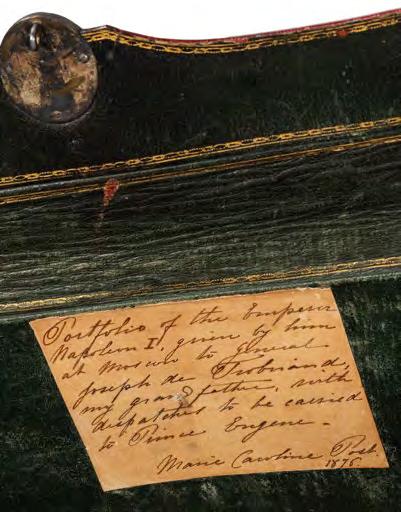 Portfolio of the Emperor
Napoleon I, given by him
at Moscow to General
Joseph de Trobriand,
my grandfather, with
dispatches to be carried
to Prince Eugene –
Marie Caroline Post.
1876.